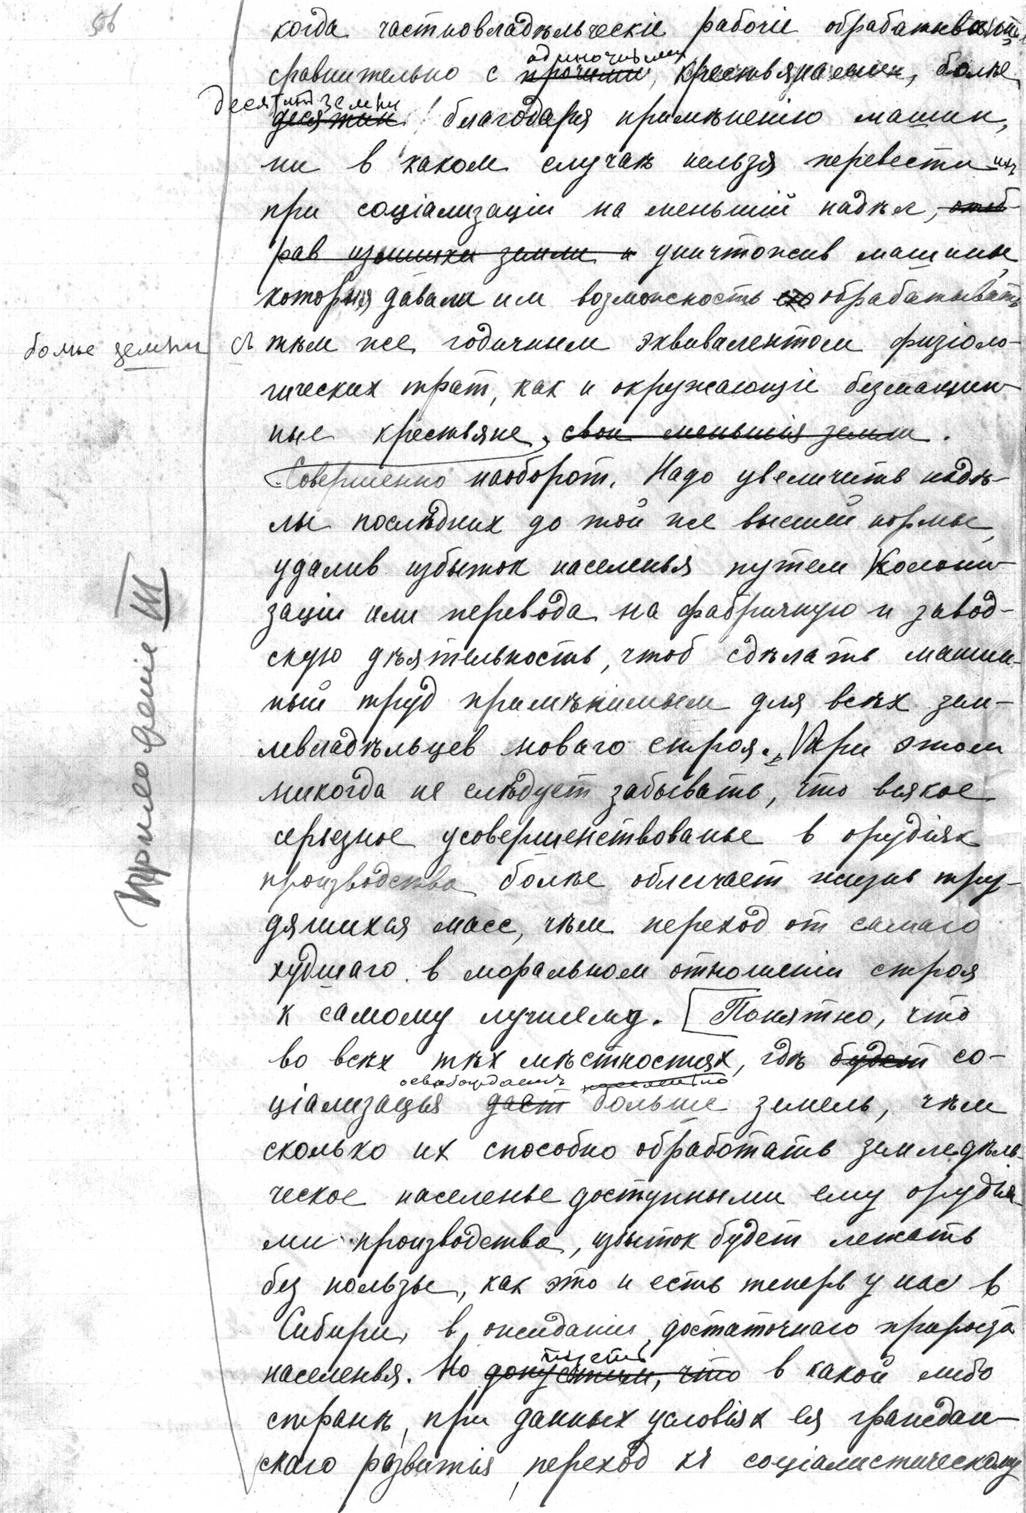 56
когда частновладѣльческіе рабочіе обрабатываютъ
одиночными
сравнительно с прочими, крестьянами, болѣе
десятин земли
десятин благодаря примѣненію машин,
ни в каком случаѣ нельзя перевести их
при соціализаціи на меньшій надѣл, отоб-
рав излишки земли и уничтожив машины
которыя давали им возможность обрабатывать
больше земли съ тѣм же годичным эквивалентом физіоло-
гических трат, как и окружающіе безмашин-
ные крестьяне, свои меньшія земли.
Совершенно наоборот. Надо увеличить надѣ-
лы послѣдних до той же высшей нормы,
удалив избыток населенья путем колони-
заціи или перевода на фабричную и завод-
скую дѣятельность, чтоб сдѣлать машин-
ный труд примѣнимым для всѣх зем-
левладѣльцев новаго строя. При этом
никогда не слѣдует забывать, что всякое
серьезное усовершенствованье в орудіях
производства болѣе облегчает жизнь тру-
дящихся масс, чѣм переход от самаго
худшаго в моральном отношеніи строя
к самому лучшему. Понятно, что
во всѣх тѣх мѣстностях, гдѣ будет со-
освобождаетъ населенію
ціализацья даст больше земель, чѣм
сколько их способно обработать земледѣль
ческое населенье доступными ему орудья
ми производства, избыток будет лежать
без пользы, как это и есть теперь у нас в
Сибири, в ожиданіи достаточнаго прироста
пусть
населенья. Но допустим, что в какой либо
странѣ, при данных условіях ея граждан-
скаго развитія, переход къ соціалистическому
Приложеніе III